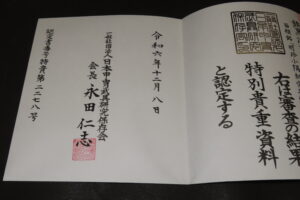 右は審査の結果
特別貴重資料
と認定する
令和六年十二月八日
一般社団法人日本甲冑武具研究保存会
会長 永田仁志
認定書番号特貴第二二七八号